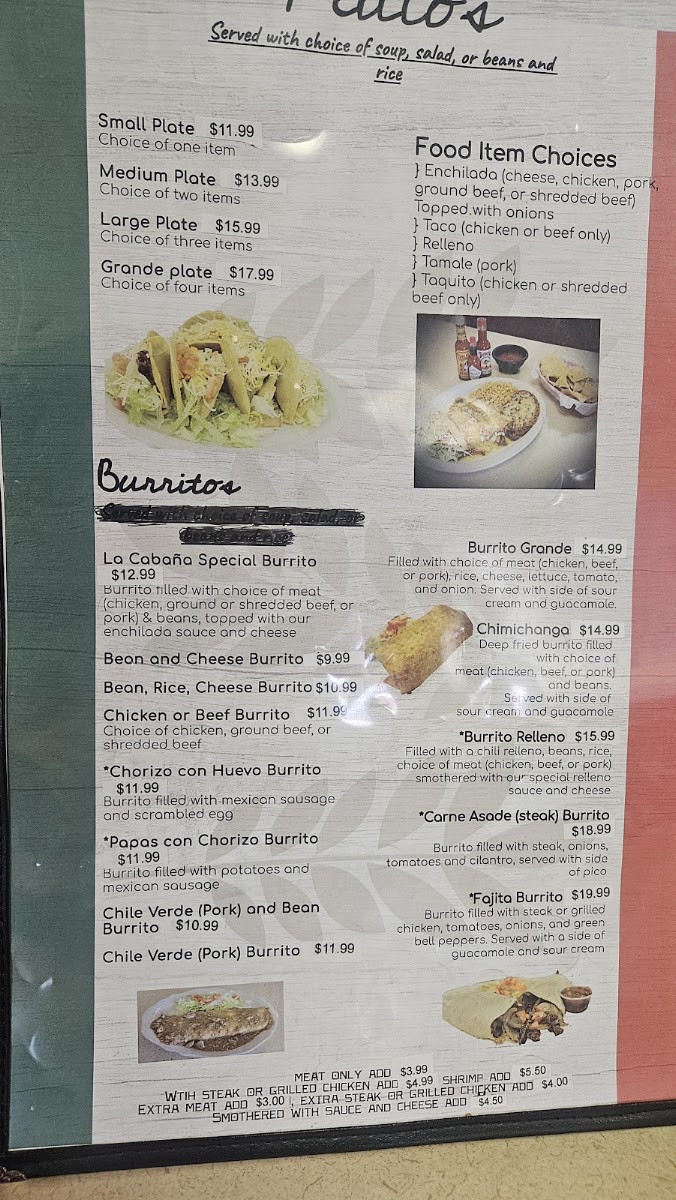 Platos
Served with choice of soup, salad, or beans and
rice
Small Plate $11.99
Choice of one item
Medium Plate $13.99
Choice of two items
Large Plate $15.99
Choice of three items
Grande plate $17.99
Choice of four items
Food Item Choices
} Enchilada (cheese, chicken, pork,
ground beef, or shredded beef)
Topped with onions
} Taco (chicken or beef only)
} Relleno
} Tamale (pork)
} Taquito (chicken or shredded
beef only)
Burritos
Served with choice of soup, salad, or
beans and rice
La Cabaña Special Burrito
$12.99
Burrito filled with choice of meat
(chicken, ground or shredded beef, or
pork) & beans, topped with our
enchilada sauce and cheese
Bean and Cheese Burrito $9.99
Bean, Rice, Cheese Burrito $10.99
Chicken or Beef Burrito $11.99
Choice of chicken, ground beef, or
shredded beef
*Chorizo con Huevo Burrito
$11.99
Burrito filled with mexican sausage
and scrambled egg
*Papas con Chorizo Burrito
$11.99
Burrito filled with potatoes and
mexican sausage
Chile Verde (Pork) and Bean
Burrito $10.99
Chile Verde (Pork) Burrito $11.99
Burrito Grande $14.99
Filled with choice of meat (chicken, beef,
or pork), rice, cheese, lettuce, tomato,
and onion. Served with side of sour
cream and guacamole.
Chimichanga $14.99
Deep fried burrito filled
with choice of
meat (chicken, beef, or pork)
and beans.
Served with side of
sour cream and guacamole
*Burrito Relleno $15.99
Filled with a chili relleno, beans, rice,
choice of meat (chicken, beef, or pork)
smothered with our special relleno
sauce and cheese
*Carne Asade (steak) Burrito
$18.99
Burrito filled with steak, onions,
tomatoes and cilantro, served with side
of pico
*Fajita Burrito $19.99
Burrito filled with steak or grilled
chicken, tomatoes, onions, and green
bell peppers. Served with a side of
guacamole and sour cream
MEAT ONLY ADD $3.99
WTIH STEAK OR GRILLED CHICKEN ADD $4.99 SHRIMP ADD $5.50
EXTRA MEAT ADD $3.00 , EXTRA STEAK OR GRILLED CHICKEN ADD $4.00
SMOTHERED WITH SAUCE AND CHEESE ADD $4.50